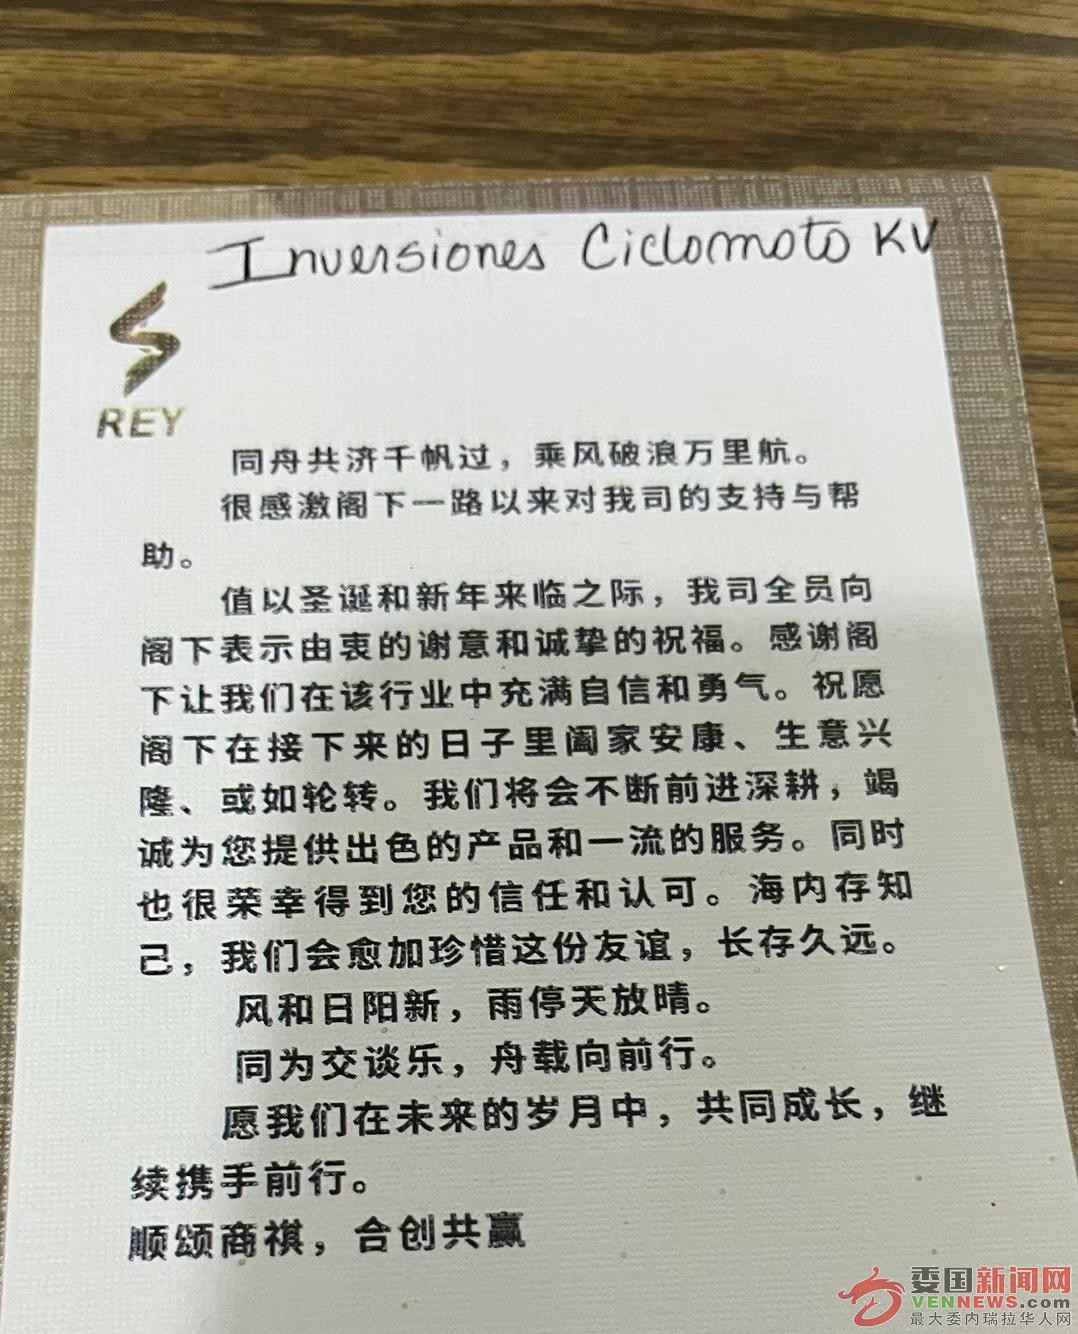 Inversiones Ciclomoto KV
REY
同舟共济千帆过，乘风破浪万里航。
很感激阁下一路以来对我司的支持与帮
助。
值以圣诞和新年来临之际，我司全员向
阁下表示由衷的谢意和诚挚的祝福。感谢阁
下让我们在该行业中充满自信和勇气。祝愿
阁下在接下来的日子里阖家安康、生意兴
隆、或如轮转。我们将会不断前进深耕，竭
诚为您提供出色的产品和一流的服务。同时
也很荣幸得到您的信任和认可。海内存知
己，我们会愈加珍惜这份友谊，长存久远。
风和日阳新，雨停天放晴。
同为交谈乐，舟载向前行。
愿我们在未来的岁月中，共同成长，继
续携手前行。
顺颂商祺，合创共赢
委国新闻网
VENNEWS.com
最大委内瑞拉华人网